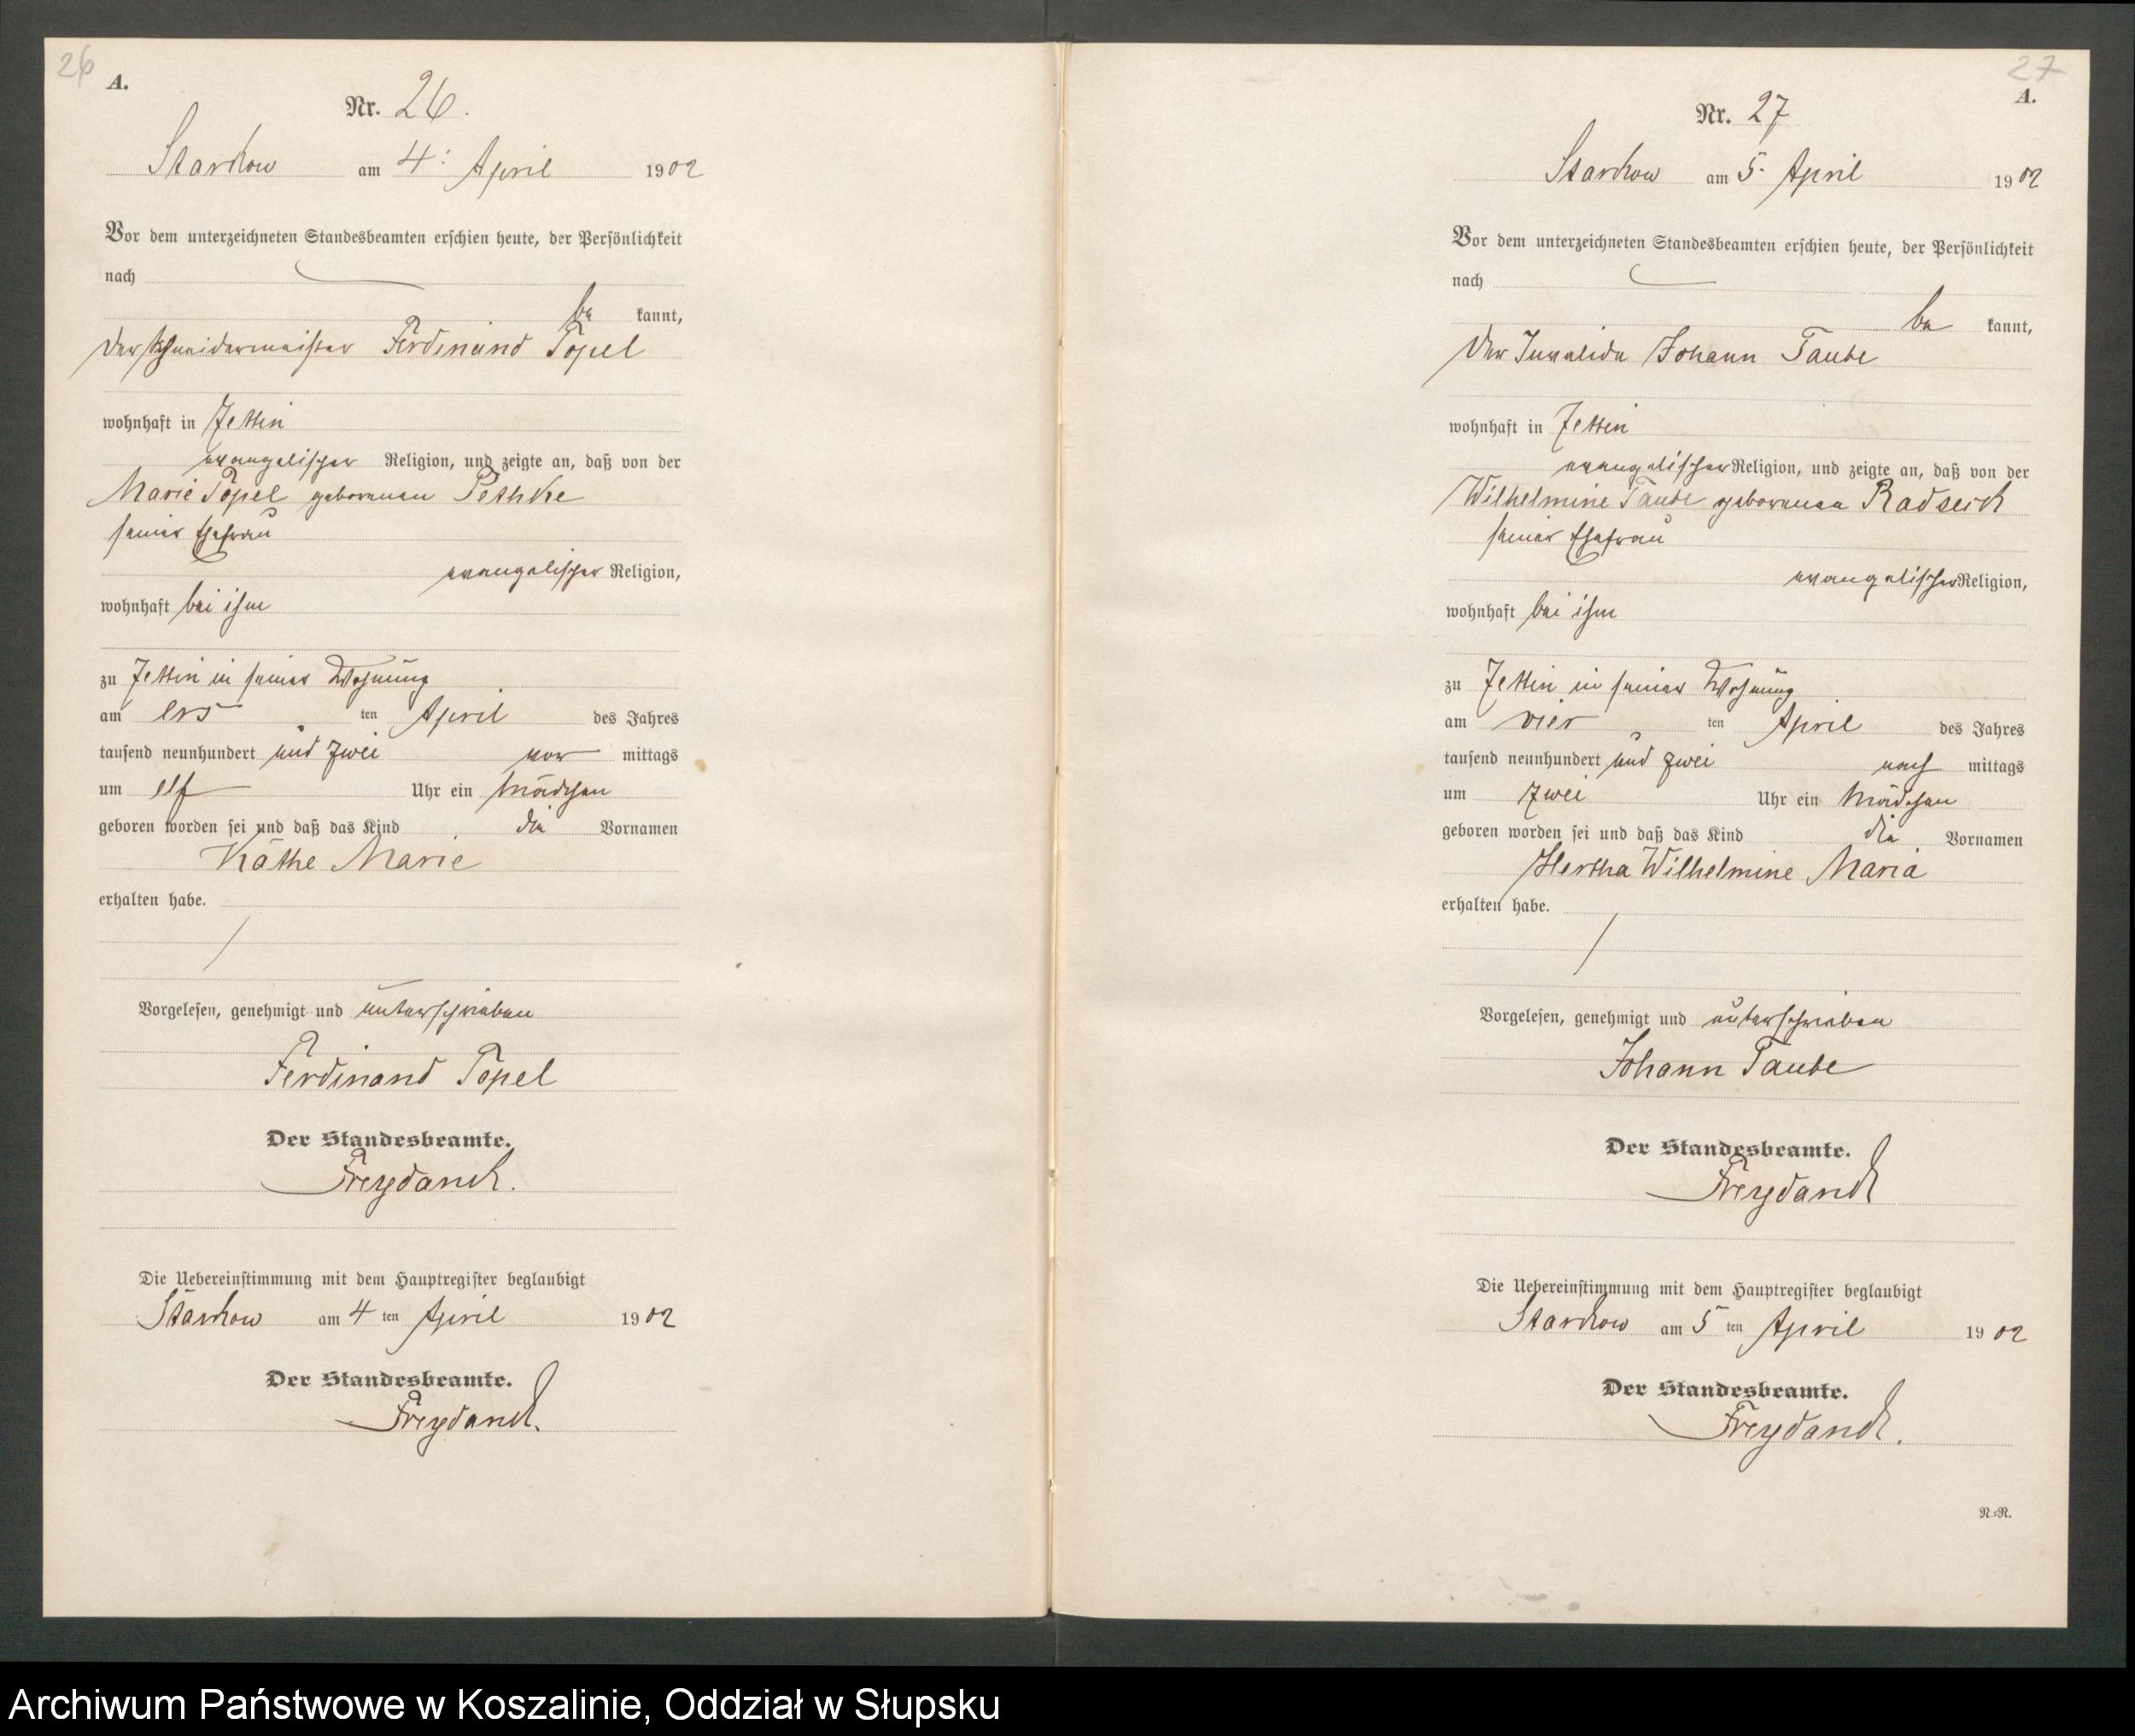 26
A.
Nr. 26.
Starkow am 4. April 1902
Vor dem unterzeichneten Standesbeamten erschien heute, der Persönlichkeit
nach
be kannt,
der Schneidermeister Ferdinand Topel
wohnhaft in Jettin
evangelischer Religion, und zeigte an, daß von der
Marie Topel geborenen Pethke
seiner Ehefrau
evangelischer Religion,
wohnhaft bei ihm
zu Jettin in seiner Wohnung
am ers ten April des Jahres
tausend neunhundert und zwei vor mittags
um elf Uhr ein Mädchen
geboren worden sei und daß das Kind die Vornamen
Käthe Marie
erhalten habe.
Vorgelesen, genehmigt und unterschrieben
Ferdinand Topel
Der Standesbeamte.
Freydanck.
Die Uebereinstimmung mit dem Hauptregister beglaubigt
Starkow am 4 ten April 1902
Der Standesbeamte.
Freydanck.
27
A.
Nr. 27
Starkow am 5. April 1902
Vor dem unterzeichneten Standesbeamten erschien heute, der Persönlichkeit
nach
be kannt,
der Invalide Johann Taube
wohnhaft in Jettin
evangelischer Religion, und zeigte an, daß von der
Wilhelmine Taube geborenen
seiner Ehefrau
evangelischer Religion,
wohnhaft bei ihm
zu Jettin in seiner Wohnung
am vier ten April des Jahres
tausend neunhundert und zwei nach mittags
um zwei Uhr ein Mädchen
geboren worden sei und daß das Kind die Vornamen
Hertha Wilhelmine Maria
erhalten habe.
Vorgelesen, genehmigt und unterschrieben
Johann Taube
Der Standesbeamte.
Freydanck
Die Uebereinstimmung mit dem Hauptregister beglaubigt
Starkow am 5 ten April 1902
Der Standesbeamte.
Freydanck.
N.=R.
Archiwum Państwowe w Koszalinie, Oddział w Słupsku